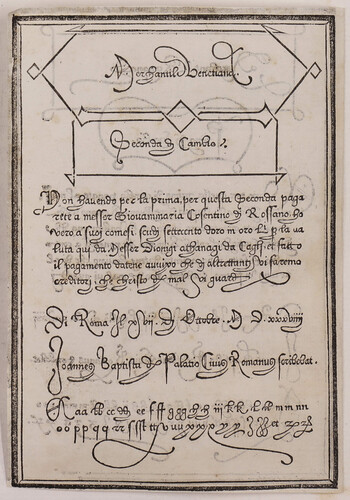 Merchantile Venetiana.
Seconda di Cambio.
Non havendo per la prima, per questa Seconda paga
rete a messer Giovanmaria Cosentino di Rossano, ho
vero a suoi comessi. scudi settecento doro in oro p la va
luta qui da Messer Dionigi athanagi da Cagli, et fatto
il pagamento datene avviso che di altrettanti vi faremo
creditori, che christo di mal vi guardi
Di Roma di Ottobre. M D xxxviiii
Joannes Baptista de Palatio Civis Romanus scribebat.
aa bb cc dd ee ff gg hh iii kk ll mm nn
oo pp qq rr ssst tt vuu xx yy et